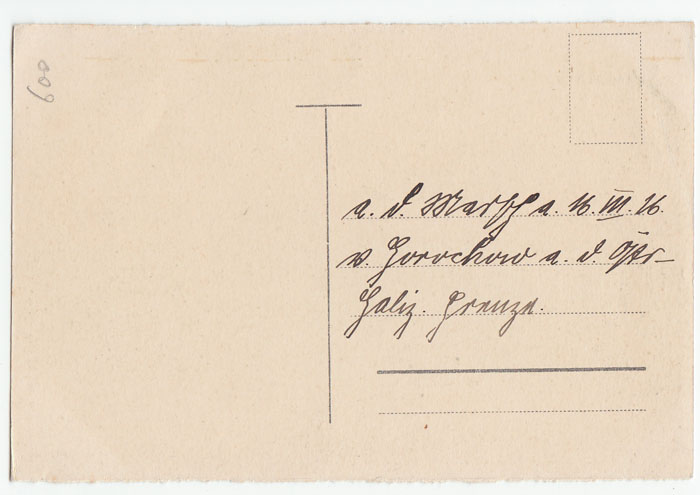 600
a. d. Marsch a. 16. VIII. 16.
v. Gorochow a. d. Östr-
Galiz. Grenze.